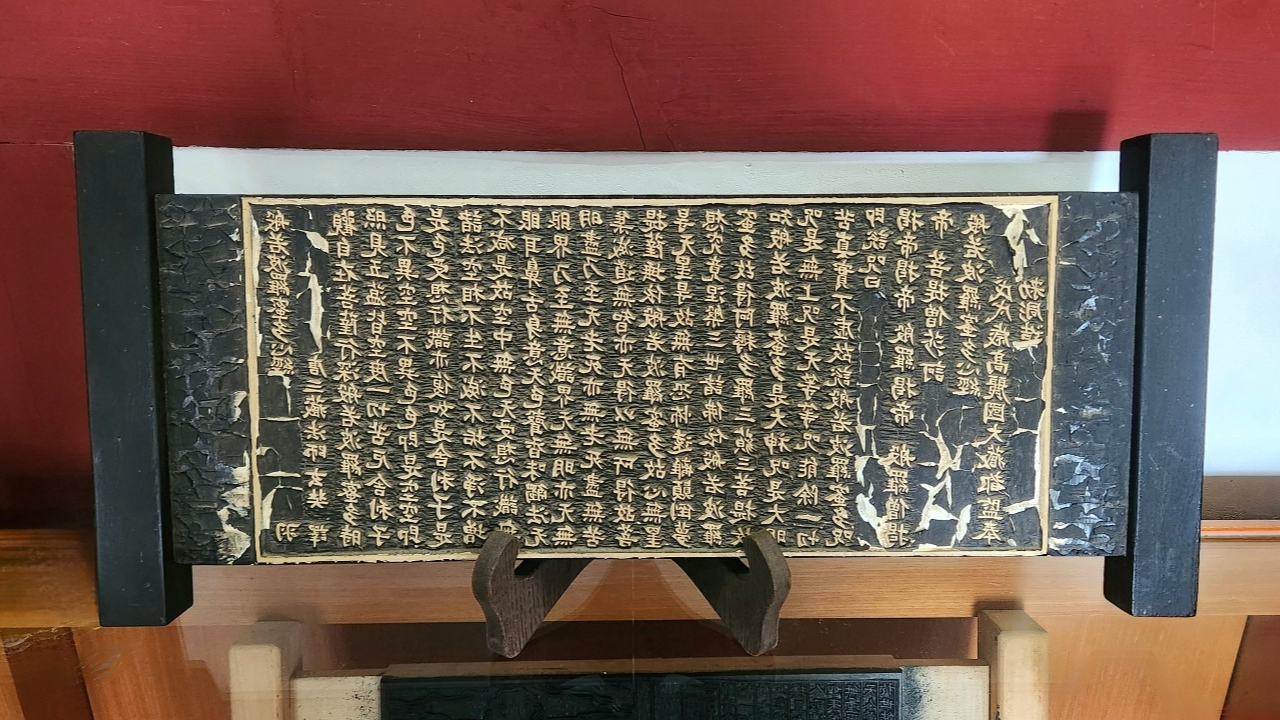 般若波羅蜜多心經 羽
唐三藏法師玄奘 譯
觀自在菩薩行深般若波羅蜜多時
照見五蘊皆空度一切苦厄舍利子
色不異空空不異色色即是空空即
是色受想行識亦復如是舍利子是
諸法空相不生不滅不垢不淨不增
不減是故空中無色无受想行識無
眼耳鼻舌身意无色聲香味觸法无
眼界乃至無意識界无無明亦无無
明盡乃至无老死亦無老死盡無苦
集滅道無智亦无得以無所得故菩
提薩埵依般若波羅蜜多故心無罣
㝵无罣㝵故無有恐怖遠離顛倒夢
想究竟涅槃三世諸佛依般若波羅
蜜多故得阿耨多羅三藐三菩提故
知般若波羅蜜多是大神呪是大明
呪是無上呪是无等等呪能除一切
苦真實不虛故說般若波羅蜜多呪
即說呪曰
揭帝揭帝 般羅揭帝 般羅僧揭
帝 菩提僧莎訶
般若波羅蜜多心經
戊戌歲高麗國大藏都監奉
勑彫造